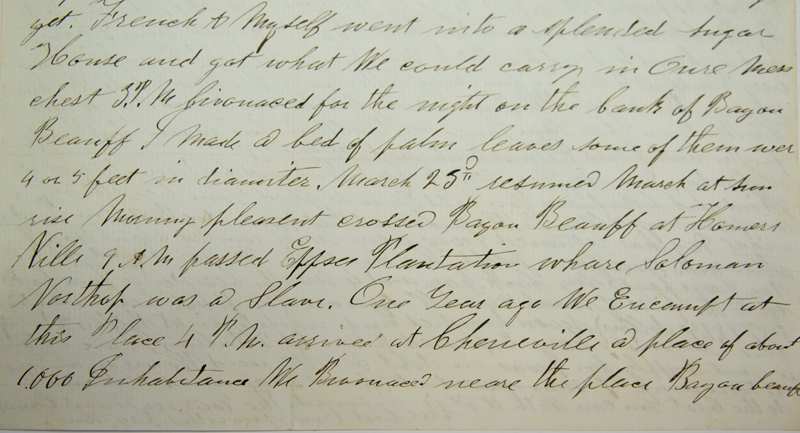 yet. French & Myself went into a splended sugar
House and got what We could carry in Oure Mess
chest 3.P.M bivonaced for the night on the bank of Bayou
Beauff I made a bed of palm leaves some of them wer
4 or 5 feet in diamiter. March 25th resumed March at sun
rise Morning pleasent crossed Bayou Beauff at Homers
Nills 9 A.M passed Eppses Plantation whare Soloman
Northop was a Slave. One Year ago We Encampt at
this Place 4 P.M. arrived at Cheneville a place of about
1.000 Inhabitance We Bivonaced neare the place Bayou beauff